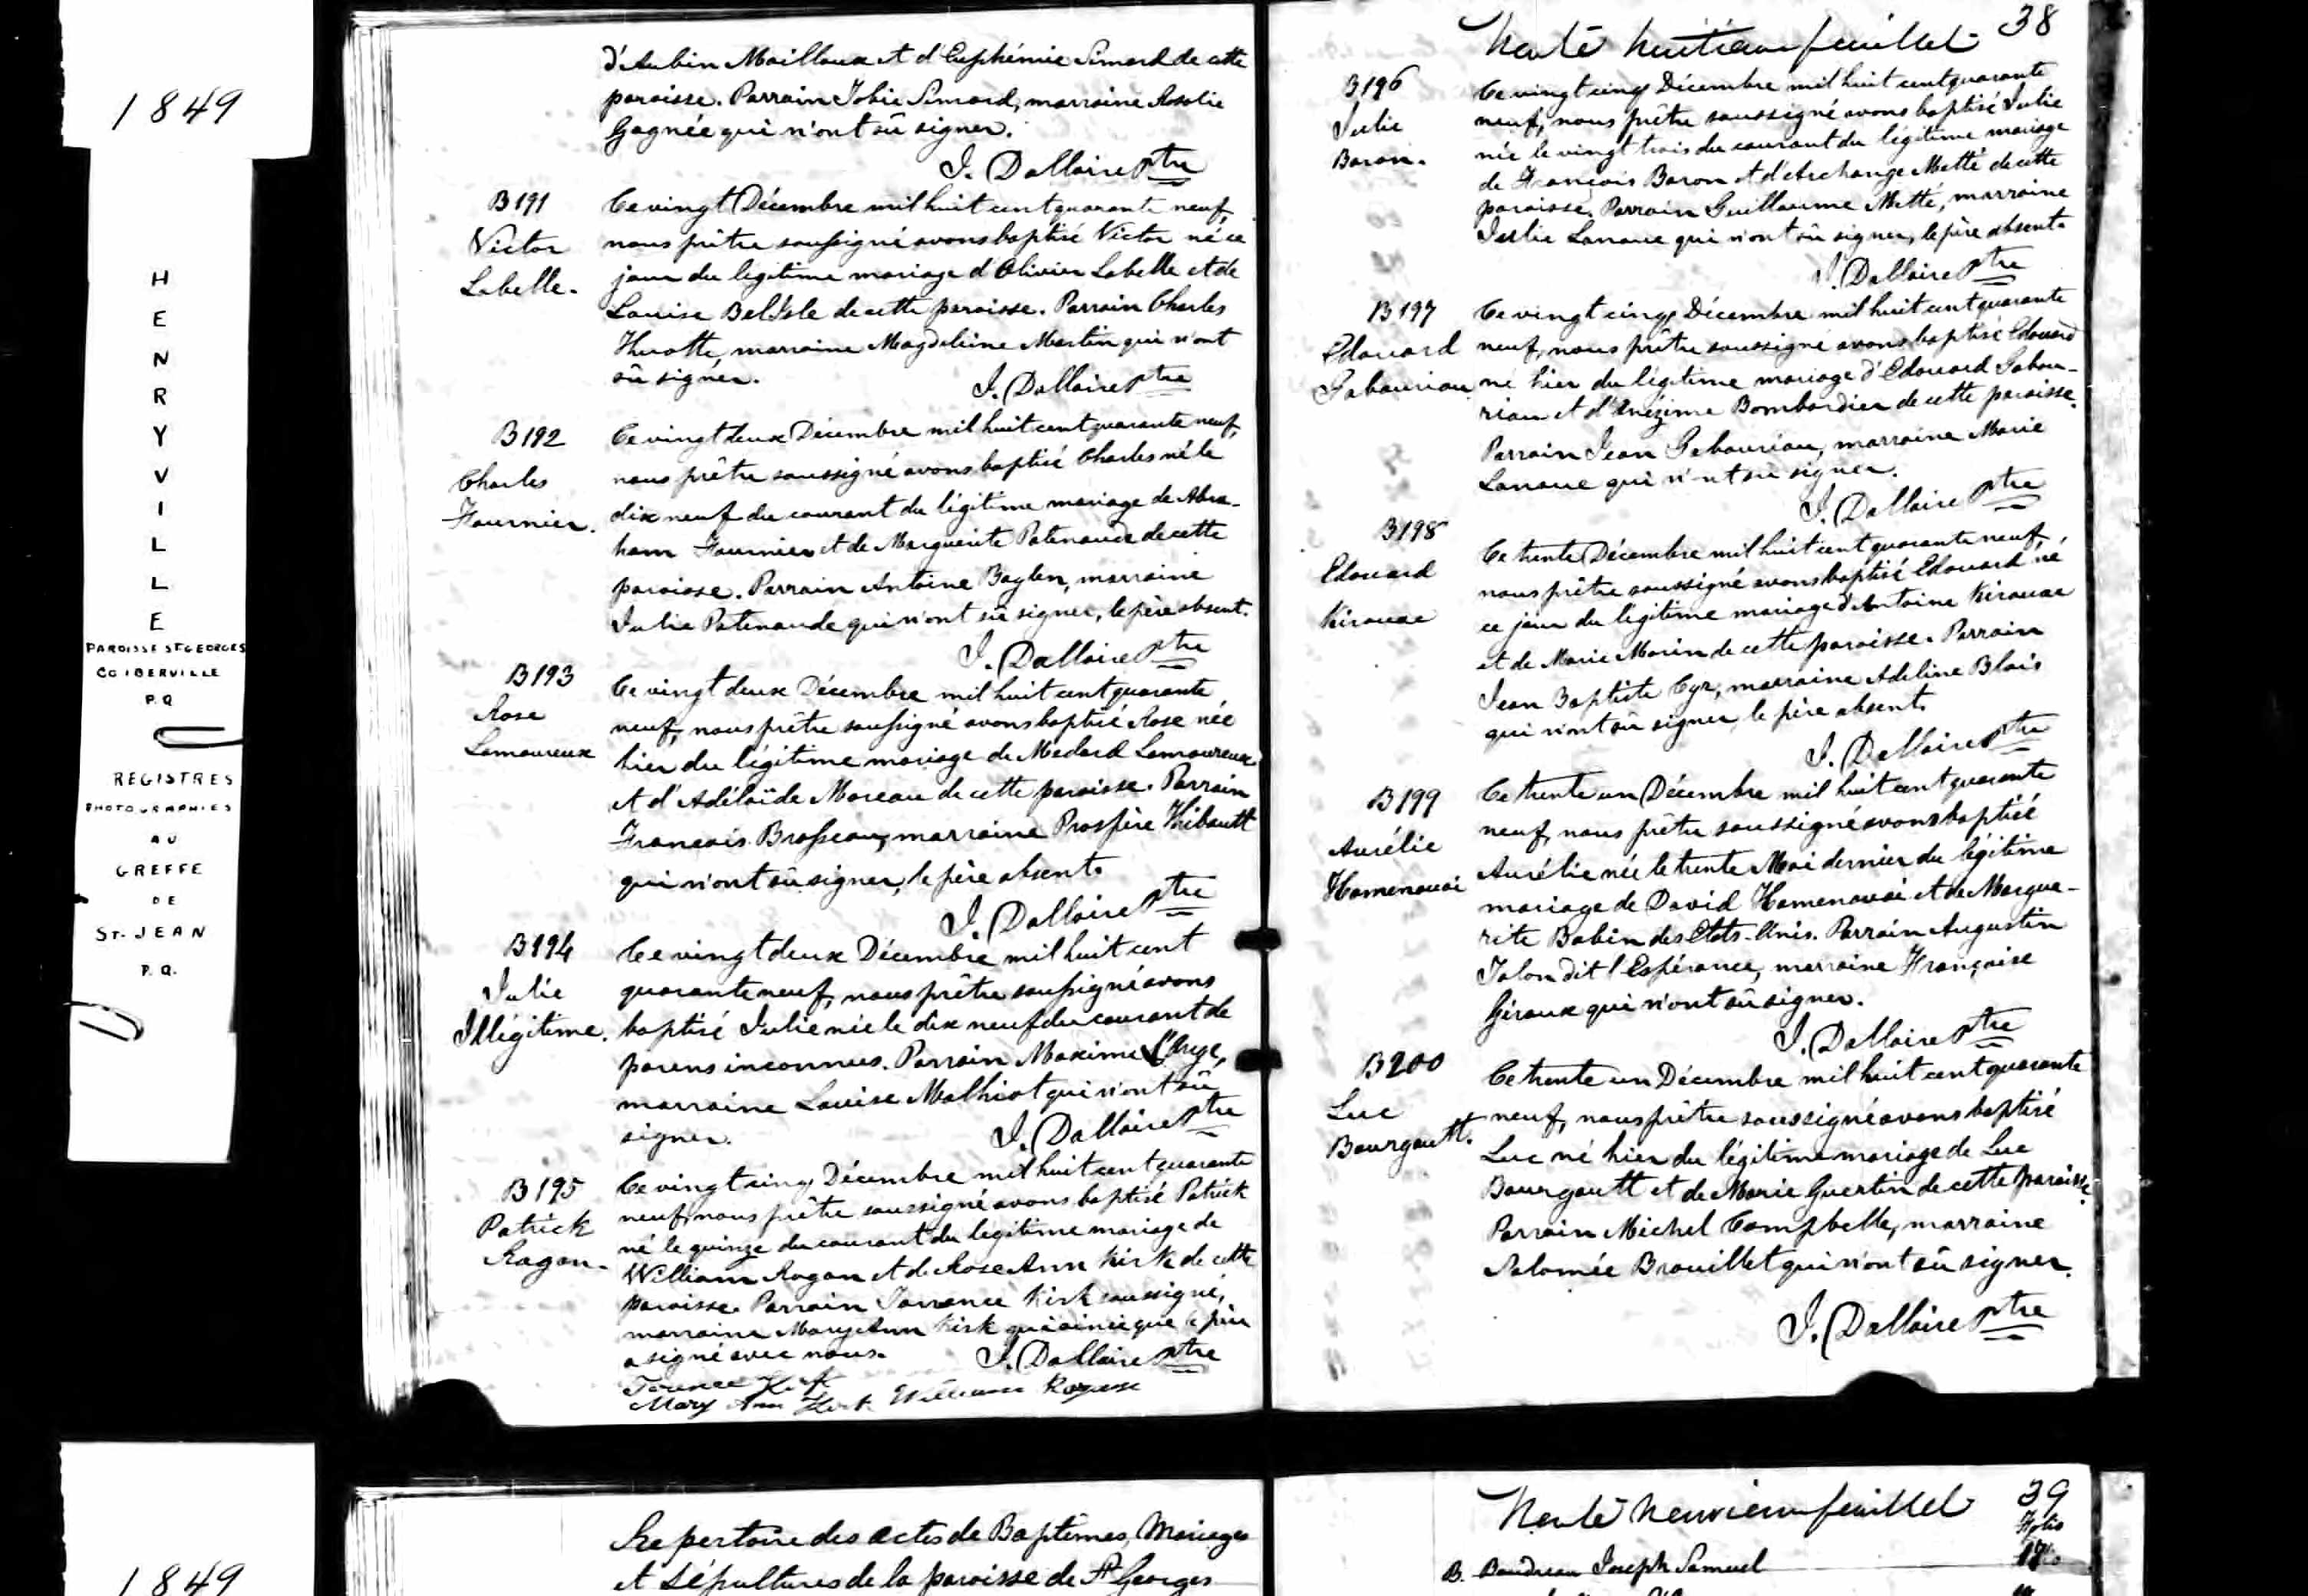 1849
HENRYVILLE
PAROISSE ST GEORGES
CO IBERVILLE
P.Q
REGISTRES
PHOTOGRAPHIES
AU
GREFFE
DE
ST. JEAN
P.Q.
d'Aubin Mailloux et d'Euphémie Simard de cette
paroisse. Parrain Tobie Simard, marraine Rosalie
Gagnée qui n'ont sû signer.
J. Dallaire Ptre
B191
Victor
Labelle.
Ce vingt Décembre mil huit cent quarante neuf,
nous prêtre soussigné avons baptisé Victor né ce
jour du légitime mariage d'Olivier Labelle et de
Louise BelIsle de cette paroisse. Parrain Charles
marraine Magdeleine Martin qui n'ont
sû signer.
J. Dallaire Ptre
B192
Charles
Fournier.
Ce vingt deux Décembre mil huit cent quarante neuf,
nous prêtre soussigné avons baptisé Charles né le
dix neuf du courant du légitime mariage de Abra-
ham Fournier et de Marguerite Patenaude de cette
paroisse. Parrain Antoine marraine
Julie Patenaude qui n'ont sû signer, le père absent.
J. Dallaire Ptre
B193
Rose
Lamoureux
Ce vingt deux Décembre mil huit cent quarante
neuf, nous prêtre soussigné avons baptisé Rose née
hier du légitime mariage de Medard Lamoureux
et d'Adélaïde Moreau de cette paroisse. Parrain
François Brosseau, marraine Prospère Thibault
qui n'ont sû signer, le père absent.
J. Dallaire Ptre
B194
Julie
Illégitime.
Ce vingt deux Décembre mil huit cent
quarante neuf, nous prêtre soussigné avons
baptisé Julie née le dix neuf du courant de
parens inconnus. Parrain Maxime
marraine Louise Malhiot qui n'ont sû
signer.
J. Dallaire Ptre
B195
Patrick
Ragan.
Ce vingt cinq Décembre mil huit cent quarante
neuf, nous prêtre soussigné avons baptisé Patrick
né le quinze du courant du légitime mariage de
William Ragan et de Rose Ann Kirk de cette
paroisse. Parrain Torrence Kirk soussigné,
marraine Mary Ann Kirk qui ainsi que le père
a signé avec nous.
J. Dallaire Ptre
Terence Kirk
Mary Ann Kirk William
Trente huitième feuillet 38
B196
Julie
Baron.
Ce vingt cinq Décembre mil huit cent quarante
neuf, nous prêtre soussigné avons baptisé Julie
née le vingt trois du courant du légitime mariage
de François Baron et d'Archange Metté de cette
paroisse. Parrain Guillaume Metté, marraine
Julie Lanoue qui n'ont sû signer, le père absent.
J. Dallaire Ptre
B197
Edouard
Gabouriau
Ce vingt cinq Décembre mil huit cent quarante
neuf, nous prêtre soussigné avons baptisé Edouard
né hier du légitime mariage d'Edouard Gabou-
riau et d'Onézime Bombardier de cette paroisse.
Parrain Jean Gabouriau, marraine Marie
Lanoue qui n'ont sû signer.
J. Dallaire Ptre
B198
Edouard
Kirouac
Ce trente Décembre mil huit cent quarante neuf,
nous prêtre soussigné avons baptisé Edouard né
ce jour du légitime mariage d'Antoine Kirouac
et de Marie Morin de cette paroisse. Parrain
Jean Baptiste Cyr, marraine Adeline Blais
qui n'ont sû signer, le père absent.
J. Dallaire Ptre
B199
Aurélie
Hamenavai
Ce trente un Décembre mil huit cent quarante
neuf, nous prêtre soussigné avons baptisé
Aurélie née le trente Mai dernier du légitime
mariage de David Hamenavai et de Margue-
rite Babin des Etats-Unis. Parrain Augustin
Talon dit l'Espérance, marraine Françoise
Giroux qui n'ont sû signer.
J. Dallaire Ptre
B200
Luc
Bourgault.
Ce trente un Décembre mil huit cent quarante
neuf, nous prêtre soussigné avons baptisé
Luc né hier du légitime mariage de Luc
Bourgault et de Marie Guertin de cette paroisse.
Parrain Michel Campbelle, marraine
Salomée Brouillet qui n'ont sû signer.
J. Dallaire Ptre
1849
Repertoire des actes de Baptêmes, Mariages
et Sépultures de la paroisse de St Georges
Trente neuvième feuillet 39
Folio
B. Boudreau Joseph Samuel